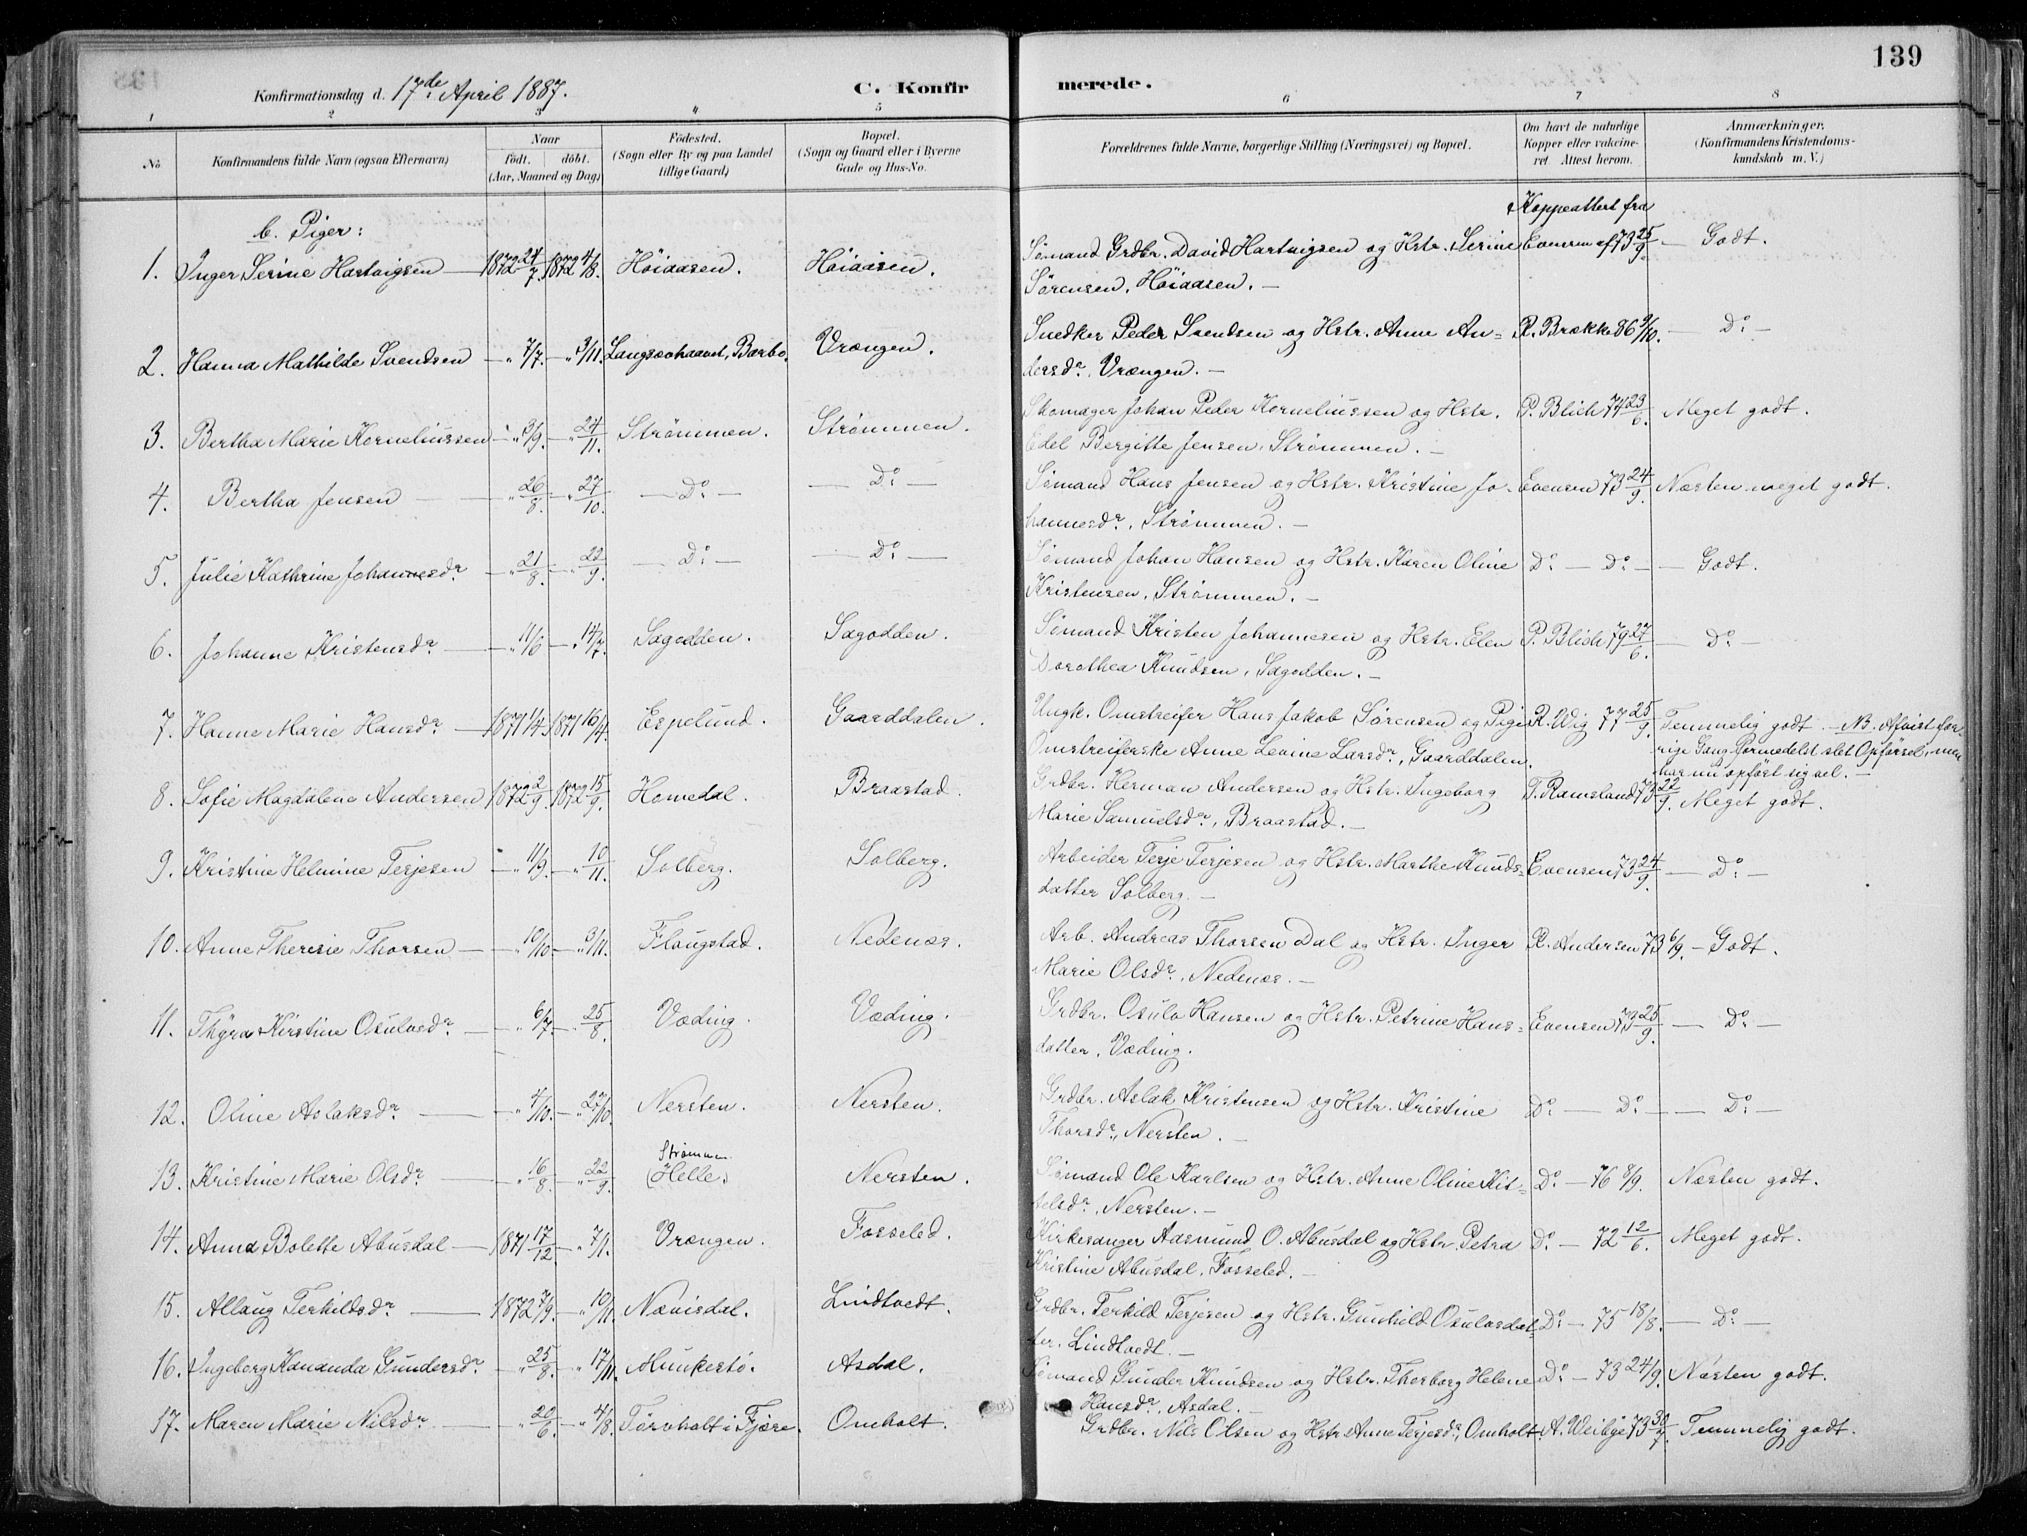 139
Konfirmationsdag d. 17de April 1887. C. Konfirmerede.
1 2 3 4 5 6 7 8
No. Konfirmandens fulde Navn (ogsaa Efternavn) Naar født. døbt. (Aar, Maaned og Dag) Fødested. (Sogn eller By og paa Landet tillige Gaard) Bopæl. (Sogn og Gaard eller i Byerne Gade og Hus-No. Forældrenes fulde Navne, borgerlige Stilling (Næringsvei) og Bopæl. Om havt de naturlige Kopper eller vakcineret. Attest herom. Anmærkninger. (Konfirmandens Kristendomskundskab m. V.)
b. Piger: Koppeattest fra
1. Inger Serine Hartvigsen — 1872 24/7. 1872 4/8. Høiaasen. Høiaasen. Sømand Grdbr. David Hartvigsen og Hstr. Serine Evensen af 73 25/9. — Godt.
Sørensen, Høiaasen. —
2. Hanna Mathilde Svendsen — " 7/7. — " 3/11. Langsævhaavet, Barbo. Vrængen. Snedker Peder Svendsen og Hstr. Anne An- R. Brække 86 9/10. — Do. —
dersdr. Vrængen. —
3. Bertha Marie Korneliussen — " 3/9. — " 24/11. Strømmen. Strømmen. Skomager Johan Peder Korneliussen og Hstr. P. Blich 74 23/6. Meget godt.
Edel Bergitte Jensen, Strømmen. —
4. Bertha Jensen — " 26/8. — " 27/10. — Do. — — Do. — Sømand Hans Jensen og Hstr. Kristine Jo- Evensen 73 24/9. Næsten meget godt.
hannesdr., Strømmen. —
5. Julie Kathrine Johannesdr. — " 21/8. — " 22/9. — Do. — — Do. — Sømand Johan Hansen og Hstr. Karen Oline Do. — Do. — — Godt.
Kristensen, Strømmen. —
6. Johanne Kristensdr. — " 11/6 — " 14/7. Sagodden. Sagodden. Sømand Kristen Johannesen og Hstr. Elen P. Blich 79 27/6. — Do. —
Dorothea Knudsen, Sagodden. —
7. Hanne Marie Hansdr. — 1871 1/4. 1871 16/4. Espelund. Gaarddalen. Ungk. Omstreifer Hans Jakob Sørensen og Pige R. Wig 77 25/9. Temmelig godt. — NB. Afvist for-
Omstreiferske Anne Levine Larsdr., Gaarddalen. rige Gang formedelst slet Opførsel, men
har nu opført sig vel. —
8. Sofie Magdalene Andersen 1872 2/9. 1872 15/9. Homedal. Braastad. Grdbr. Herman Andersen og Hstr. Ingeborg T. Ramsland 73 22/9. Meget godt.
Marie Samuelsdr., Braastad. —
9. Kristine Helmine Terjesen — " 11/9. — " 10/11. Solberg. Solberg. Arbeider Terje Terjesen og Hstr. Marthe Knuds- Evensen 73 24/9. — Do. —
datter Solberg. —
10. Anne Theresie Thorsen — " 10/10. — " 3/11. Flougstad. Nedenæs. Arb. Andreas Thorsen Dal og Hstr. Inger R. Andersen 73 6/9. — Godt.
Marie Olsdr., Nedenæs. —
11. Thyra Kirstine Osulvsdr. — " 6/7. — " 25/8. Væding. Væding. Grdbr. Osulv Hansen og Hstr. Petrine Hans- Evensen 73 25/9. — Do. —
datter, Væding.
12. Oline Aslaksdr. — " 4/10. — " 27/10. Nersten. Nersten. Grdbr. Aslak Kristensen og Hstr. Kristine Do. — Do. — — Do. —
Thorsdr., Nersten. —
13. Kristine Marie Olsdr. — " 16/8. — " 22/9. Strømmen (Helle.) Nersten. Sømand Ole Karlsen og Hstr. Anne Oline Kit- Do. — 76 8/9. Næsten godt.
telsdr., Nersten. —
14. Anna Bolette Abusdal — 1871 17/12. — " 7/1. Vrængen. Fosseled. Kirkesanger Aasmund O. Abusdal og Hstr. Petra Do. — 72 12/6. Meget godt.
Kristine Abusdal, Fosseled. —
15. Allaug Terkildsdr. — 1872 7/9. — " 10/11. Nævisdal. Lindtvedt. Grdbr. Terkild Terjesen og Hstr. Gunhild Osulvsdat- Do. — 75 18/8. — Do. —
ter. Lindtvedt. —
16. Ingeborg Kananda Gundersdr. — " 25/8. — " 17/11. Munkestø. Asdal. Sømand Gunder Knudsen og Hstr. Thorborg Helene Do. — 73 24/9. Næsten godt.
Hansdr., Asdal. —
17. Maren Marie Nilsdr. — " 20/6. — " 4/8. Tørvholt i Fjære. Omholt. Grdbr. Nils Olsen og Hstr. Anne Terjesdr., Omholt. A. Weibye 73 30/7. Temmelig godt.